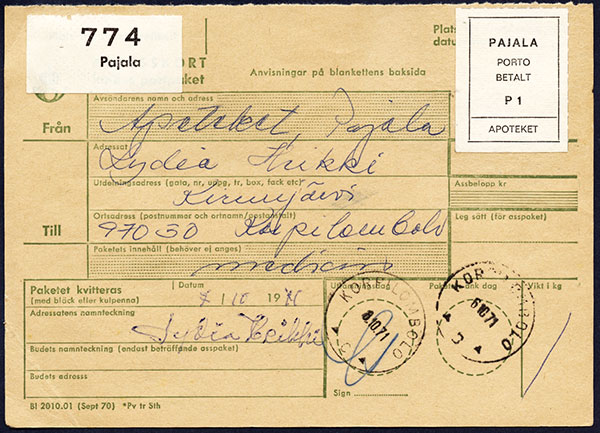 774
Pajala
Plats
datu
KORT
paket
Anvisningar på blankettens baksida
PAJALA
PORTO
BETALT
P 1
APOTEKET
Avsändarens namn och adress
Från
Apoteket, Pajala
Adressat
Lydia Heikki
Utdelningsadress (gata, nr, uppg, tr, box, fack etc)
Assbelopp kr
Ortsadress (postnummer och ortnamn/postanstalt)
Leg sätt (för asspaket)
Till
97050 Korpilombolo
Paketets innehåll (behöver ej anges)
medicin
Paketet kvitteras
(med bläck eller kulpenna)
Datum
7/10 1971
dag
Vikt i kg
Adressatens namnteckning
Lydia Heikki
KORPILOMBOLO
8.10.71
KORPILOMBOLO
6.10.71
Budets namnteckning (endast beträffande asspaket)
Budets adress
Sign
Bl 2010.01 (Sept 70) *Pv tr Sth